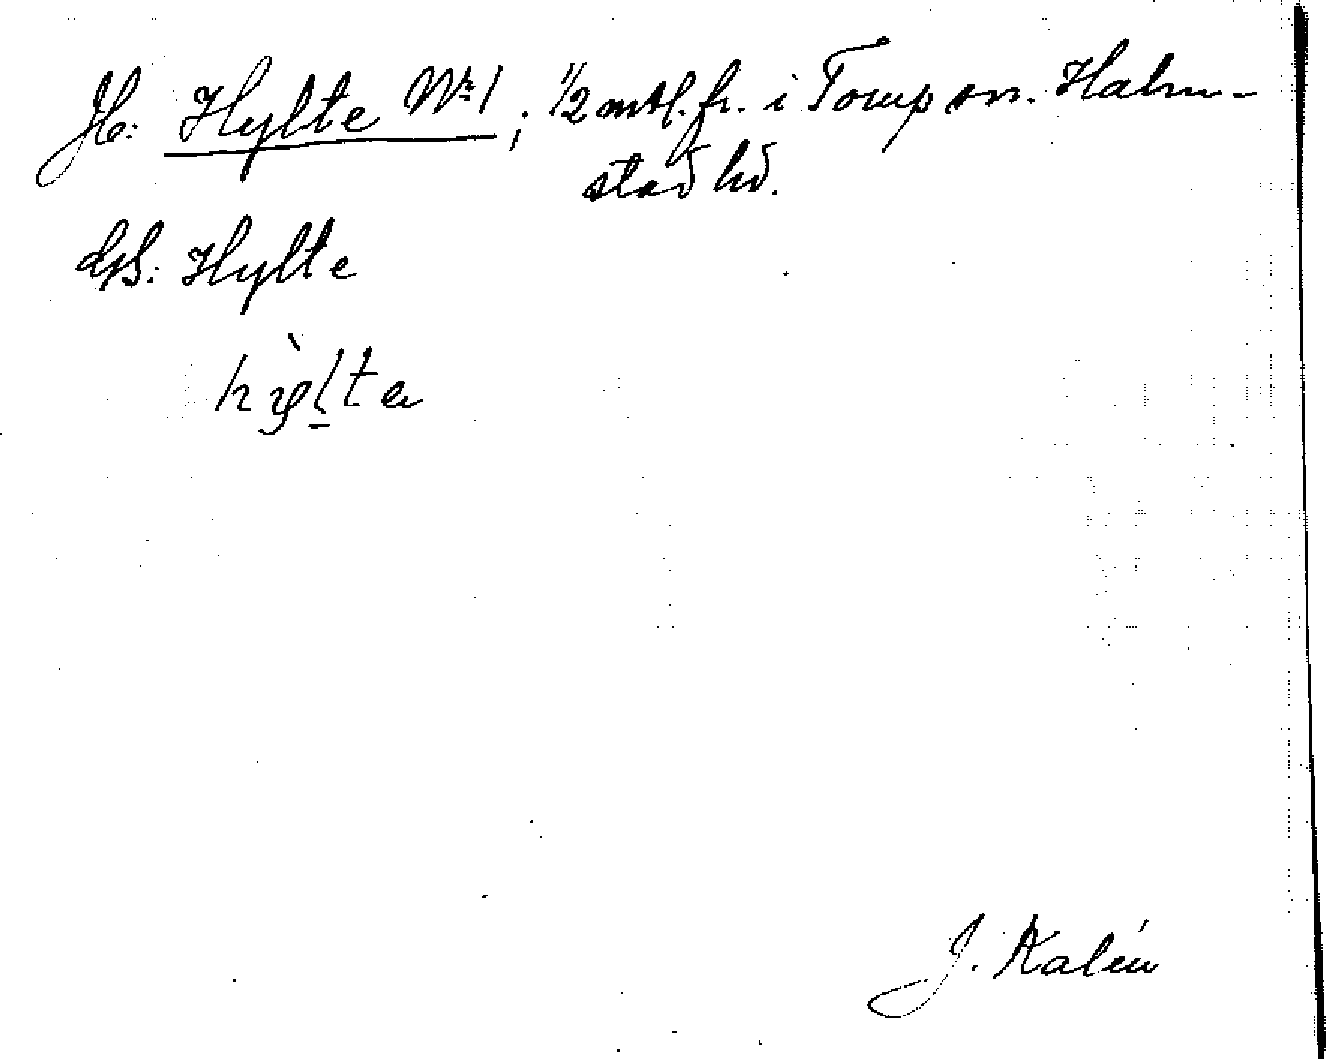 Jb: Hylte No 1; 1/2 mtl. fr. i Torup sn. Halm-
stad hd.
Hylte
J. Kalén